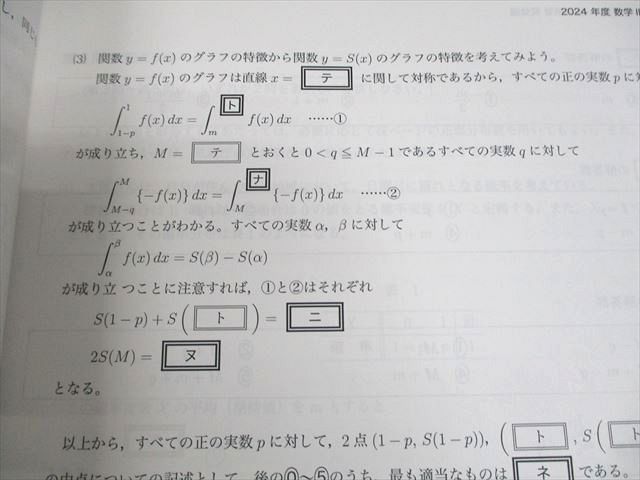 2024 年度 数学 II
(3) 関数 y = f(x) のグラフの特徴から関数 y = S(x) のグラフの特徴を考えてみよう。
関数 y = f(x) のグラフは直線 x = テ に関して対称であるから，すべての正の実数 p に対
∫_{1-p}^{1} f(x) dx = ∫_{m}^{ト} f(x) dx ……①
が成り立ち，M = テ とおくと 0 < q ≦ M − 1 であるすべての実数 q に対して
∫_{M-q}^{M} {−f(x)} dx = ∫_{M}^{ナ} {−f(x)} dx ……②
が成り立つことがわかる。すべての実数 α，β に対して
∫_{α}^{β} f(x) dx = S(β) − S(α)
が成り立 つことに注意すれば，①と②はそれぞれ
S(1−p) + S ( ト ) = ニ
2S(M) = ヌ
となる。
以上から，すべての正の実数 p に対して，2 点 (1−p, S(1−p))，( ト , S ( ト
の中点についての記述として，後の⓪〜⑤のうち，最も適当なものは ネ である。